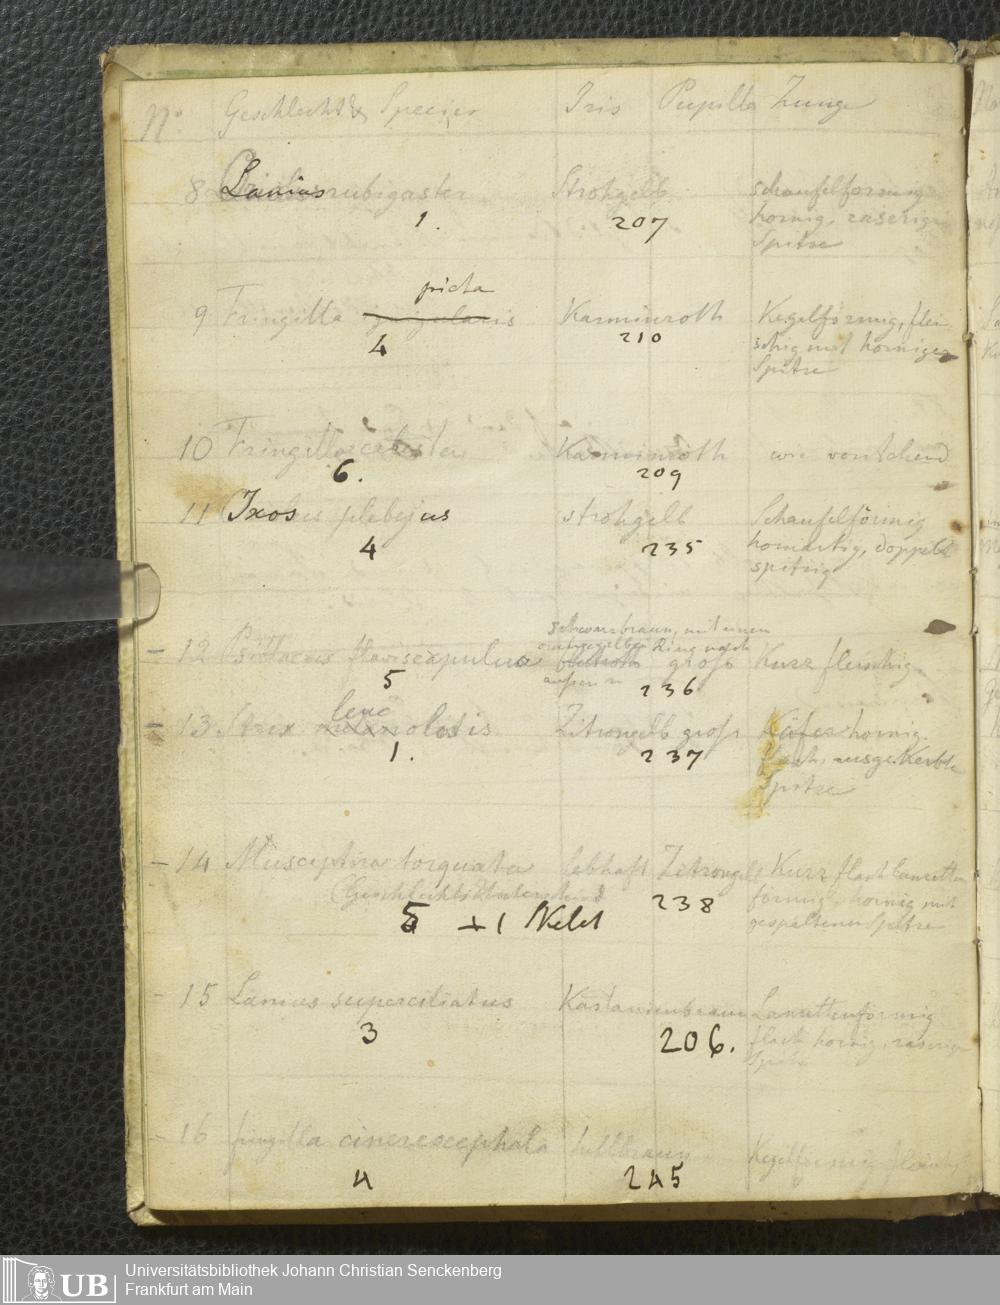 No Geschlecht & Species Iris Pupilla Zunge
8 Lanius rubigaster Strohgelb schaufelformig
1. 207 hornig, zaserige
Spitze
picta
9 Fringilla jugularis Karminroth Kegelförmig, flei
4 210 schig mit horniger
Spitze
10 Fringilla Karminroth wie vorstehend
6. 209
11 Ixos plebejus strohgelb Schaufelförmig
4 235 hornartig, doppelt
spitzig
schwarzbraun, mit einem
orangegelben Ring nach
- 12 Psittacus flaviscapulus gross Kurz fleischig
5 außen 236
leuc
- 13 Strix melanolotis Zitrongelb gross hornig
1. 237 flach, ausgekerbte
Spitze
- 14 Muscipeta torquata lebhaft Zitrongelb Kurz flach lanzetten
Geschlechts Unterschied 238 förmig, hornig mit
5 + 1 Skelet gespaltener Spitze
- 15 Lanius superciliatus Kastanienbraun Lanzettenförmig
3 206. flach hornig, zaserige
Spitze
- 16 fringilla cinereocephala hellbraun Kegelförmig fleischig
4 245
Universitätsbibliothek Johann Christian Senckenberg
Frankfurt am Main
UB